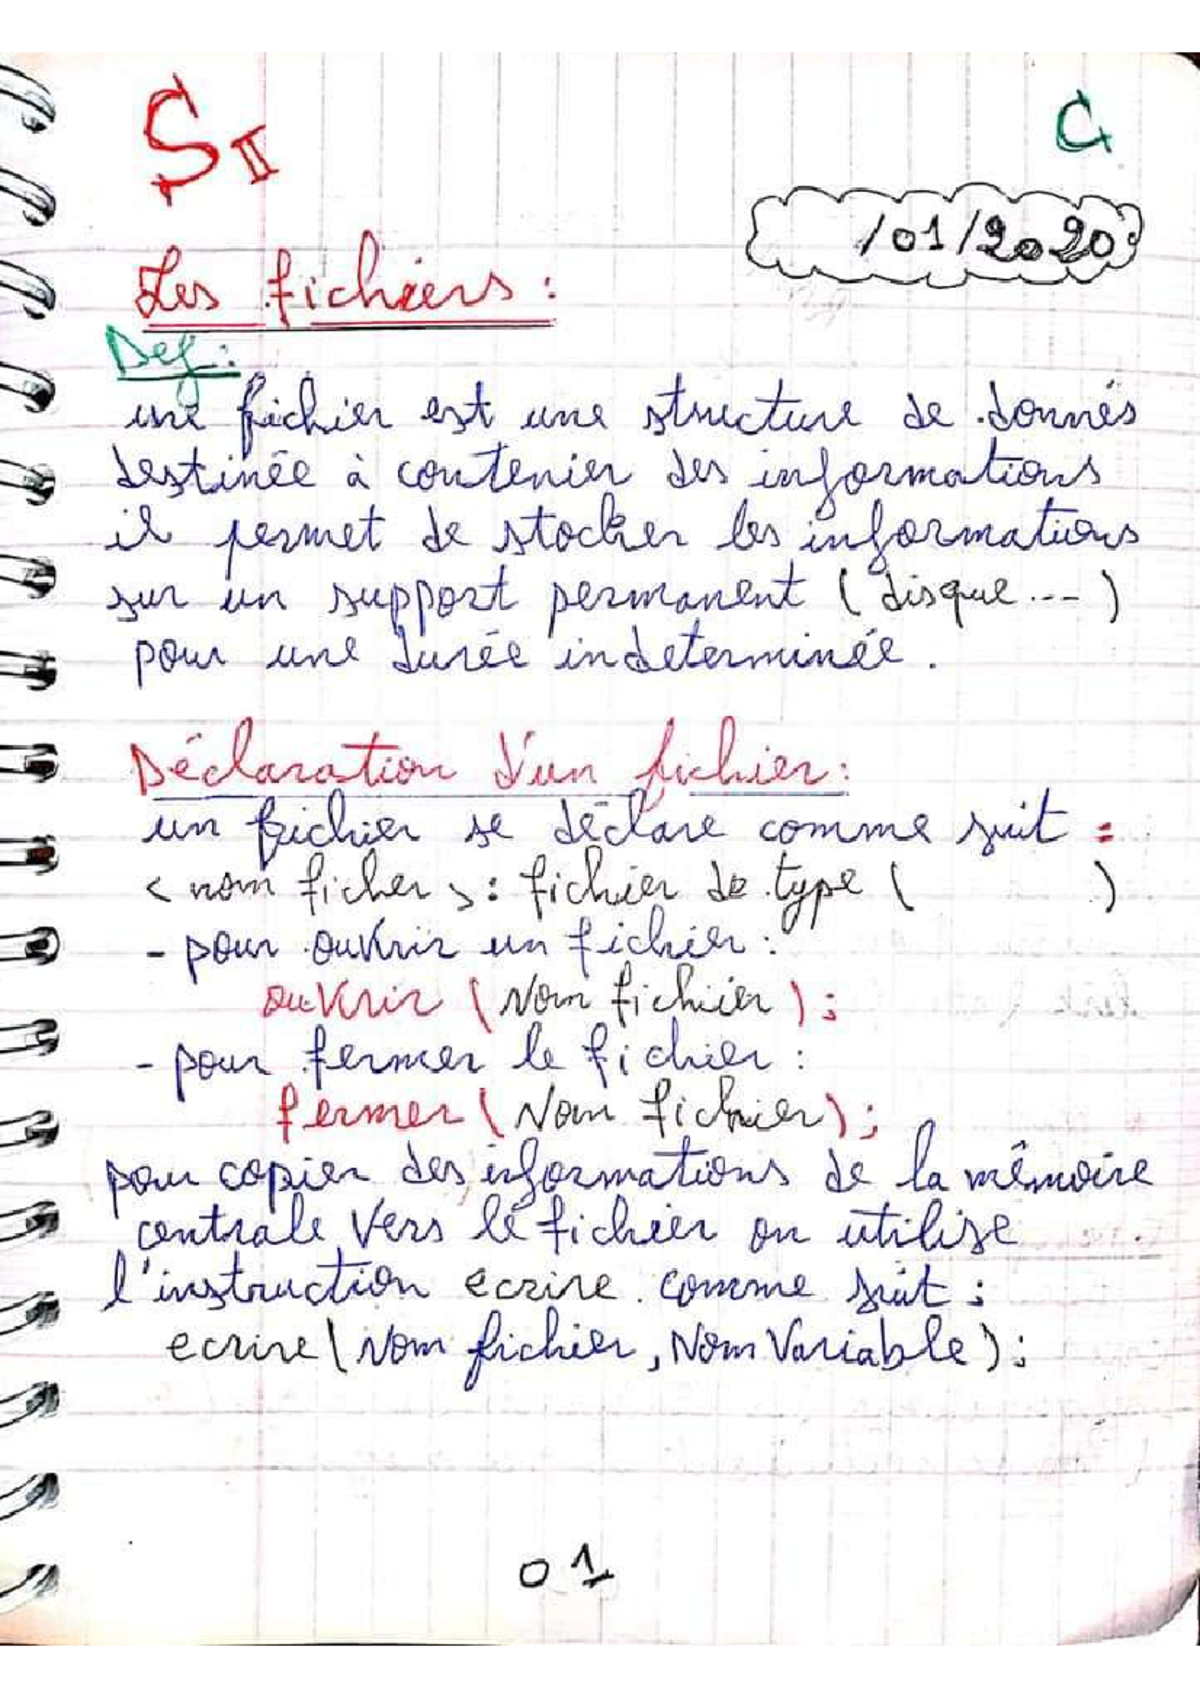 SII
C
/01/2020
Les fichiers :
Def :
une fichier est une structure de donnés
destinée à contenier des informations
il permet de stocker les informations
sur un support permanent ( disque --- )
pour une durée indeterminée .
Déclaration d'un fichier :
un fichier se déclare comme suit :
< nom ficher > : fichier de type ( )
- pour ouvrir un fichier :
ouvrir ( Nom fichier ) ;
- pour fermer le fichier :
fermer ( Nom fichier ) ;
pour copier des informations de la mêmoire
centrale vers le fichier on utilise
l'instruction ecrire comme suit :
ecrire ( Nom fichier , Nom Variable ) ;
01